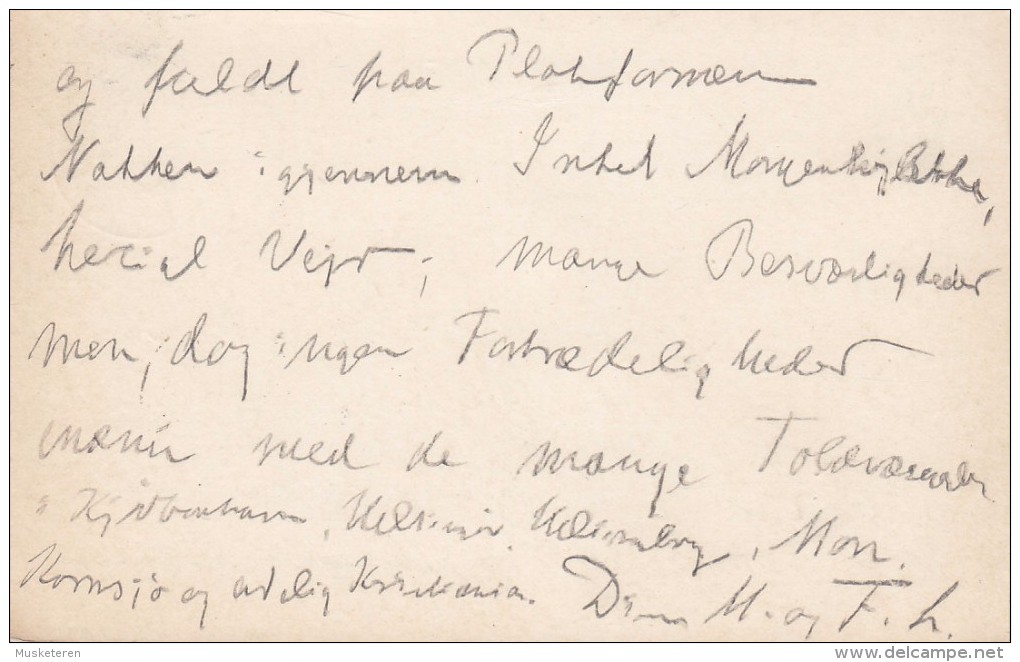 og faldt paa Platformen
Natten igjennem. Intet Morgen
Vejr; mange Besværligheder
men, dog ingen Fortrædeligheder
med de mange Toldvæsener
i Kjøbenhavn, Helsingør, Helsingborg, Mon.
Kornsjö og endelig Kristiania. Din M. og F. h.
Musketeren
delcampe.net